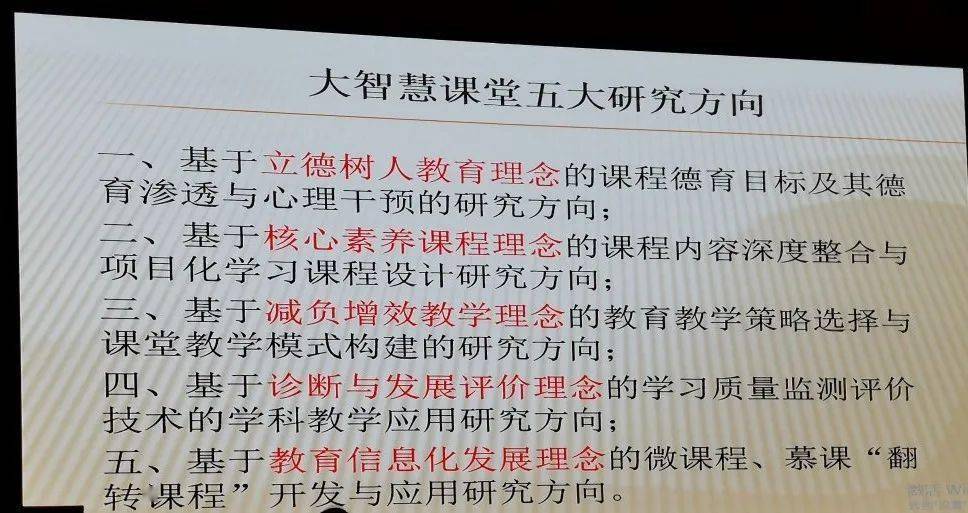 大智慧课堂五大研究方向
一、基于立德树人教育理念的课程德育目标及其德
育渗透与心理干预的研究方向；
二、基于核心素养课程理念的课程内容深度整合与
项目化学习课程设计研究方向；
三、基于减负增效教学理念的教育教学策略选择与
课堂教学模式构建的研究方向；
四、基于诊断与发展评价理念的学习质量监测评价
技术的学科教学应用研究方向；
五、基于教育信息化发展理念的微课程、慕课“翻
转课程”开发与应用研究方向。